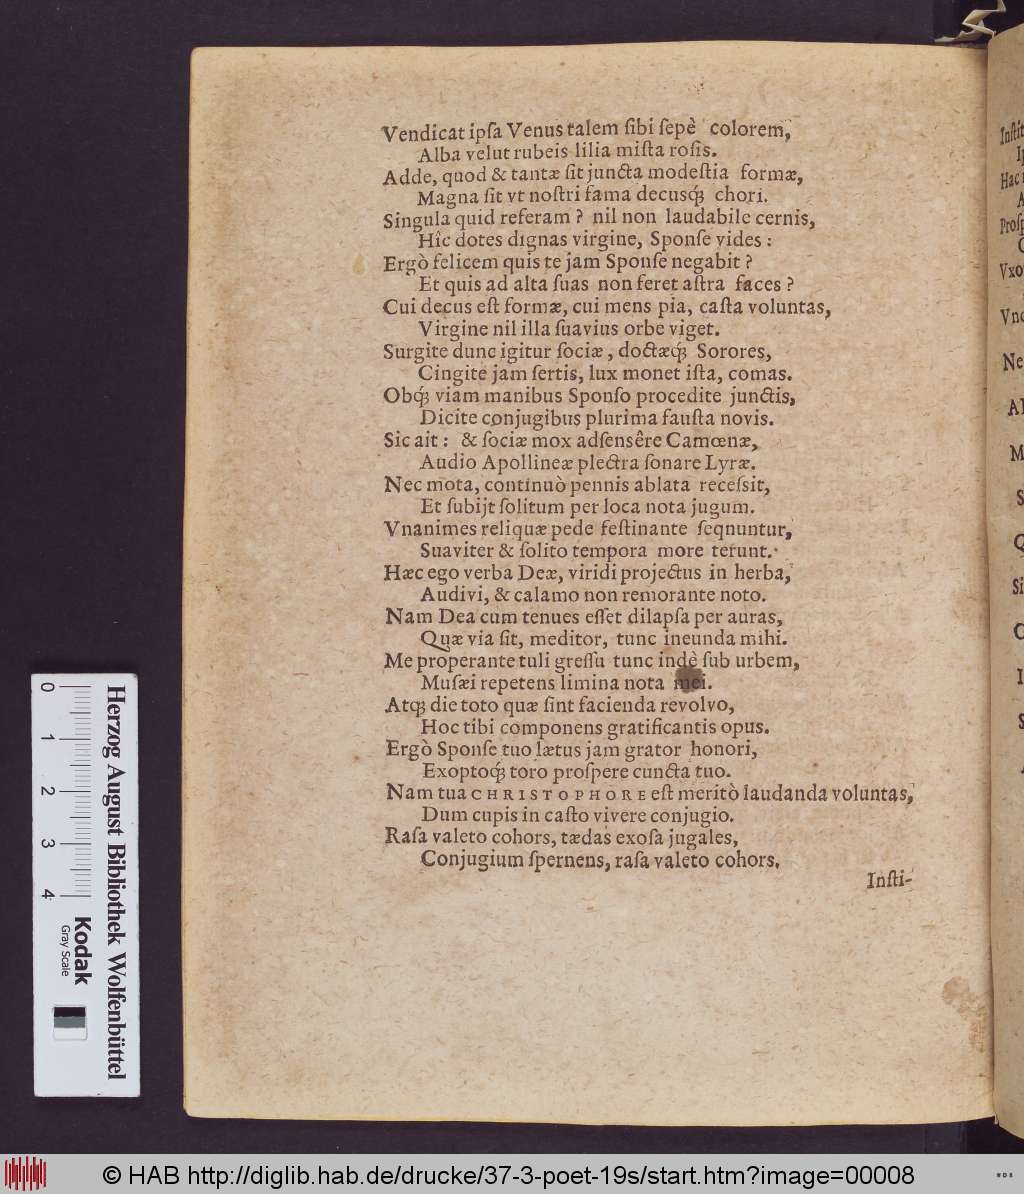 Vendicat ipſa Venus talem ſibi ſepè colorem,
Alba velut rubeis lilia miſta roſis.
Adde, quod & tantæ ſit juncta modeſtia formæ,
Magna ſit vt noſtri fama decusq́; chori.
Singula quid referam? nil non laudabile cernis,
Hîc dotes dignas virgine, Sponſe vides:
Ergò felicem quis te jam Sponſe negabit?
Et quis ad alta ſuas non feret aſtra faces?
Cui decus eſt formæ, cui mens pia, caſta voluntas,
Virgine nil illa ſuavius orbe viget.
Surgite dunc igitur ſociæ, doctæq́; Sorores,
Cingite jam ſertis, lux monet iſta, comas.
Obq́; viam manibus Sponſo procedite junctis,
Dicite conjugibus plurima fauſta novis.
Sic ait: & ſociæ mox adſensêre Camœnæ,
Audio Apollineæ plectra ſonare Lyræ.
Nec mota, continuò pennis ablata receſsit,
Et ſubijt ſolitum per loca nota jugum.
Vnanimes reliquæ pede feſtinante ſeqnuntur,
Suaviter & ſolito tempora more terunt.
Hæc ego verba Deæ, viridi projectus in herba,
Audivi, & calamo non remorante noto.
Nam Dea cum tenues eſſet dilapſa per auras,
Quæ via ſit, meditor, tunc ineunda mihi.
Me properante tuli greſſu tunc indè ſub urbem,
Muſæi repetens limina nota mei.
Atq́; die toto quæ ſint facienda revolvo,
Hoc tibi componens gratificantis opus.
Ergò Sponſe tuo lætus jam grator honori,
Exoptoq́; toro proſpere cuncta tuo.
Nam tua CHRISTOPHORE eſt meritò laudanda voluntas,
Dum cupis in caſto vivere conjugio.
Raſa valeto cohors, tædas exoſa jugales,
Conjugium ſpernens, raſa valeto cohors.
Inſti-
0 1 2 3 4
Herzog August Bibliothek Wolfenbüttel
Kodak
Gray Scale
© HAB http://diglib.hab.de/drucke/37-3-poet-19s/start.htm?image=00008